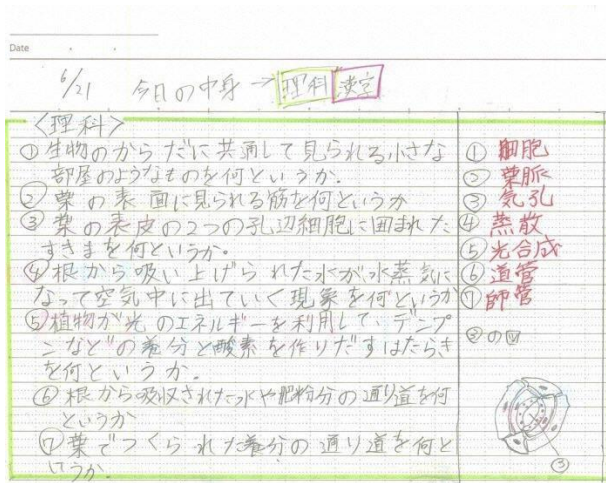 Date ・ ・
6/21 今日の中身→理科 漢字
〈理科〉
①生物のからだに共通して見られる小さな
部屋のようなものを何というか.
②葉の表面に見られる筋を何というか
③葉の表皮の2つの孔辺細胞に囲まれた
すきまを何というか。
④根から吸い上げられた水が水蒸気に
なって空気中に出ていく現象を何というか
⑤植物が光のエネルギーを利用して、デンプ
ンなどの養分と酸素を作りだすはたらき
を何というか.
⑥根から吸収された水や肥料分の通り道を何
というか
⑦葉でつくられた養分の通り道を何と
いうか.
① 細胞
② 葉脈
③ 気孔
④ 蒸散
⑤ 光合成
⑥ 道管
⑦ 師管
③の図
③